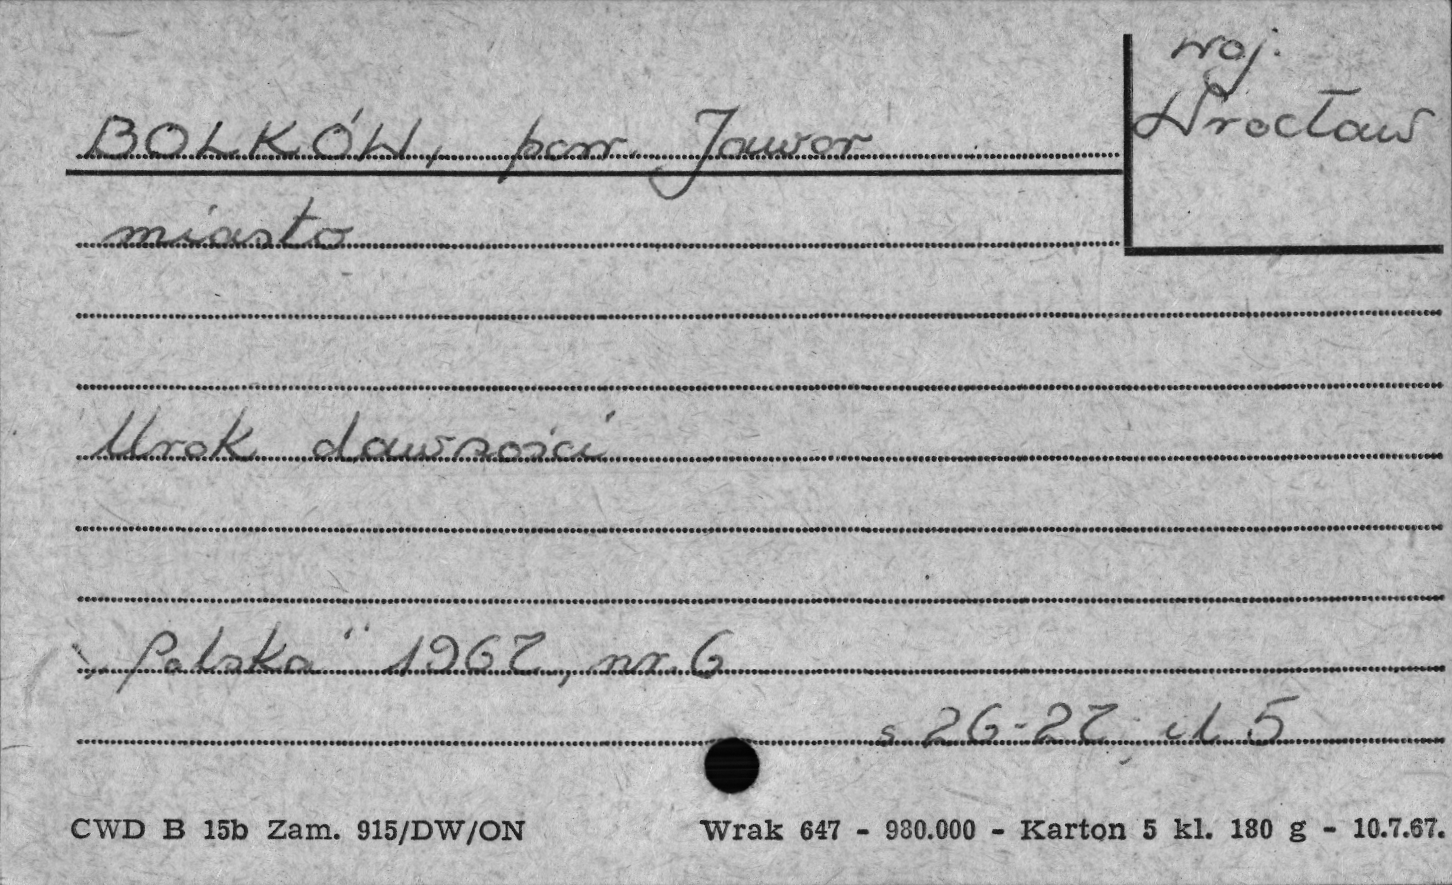 woj.
Wrocław
BOLKÓW, pow. Jawor
miasto
Urok dawności
„Polska" 1967, nr. 6
s. 26-27; il. 5
CWD B 15b Zam. 915/DW/ON
Wrak 647 - 980.000 - Karton 5 kl. 180 g - 10.7.67.